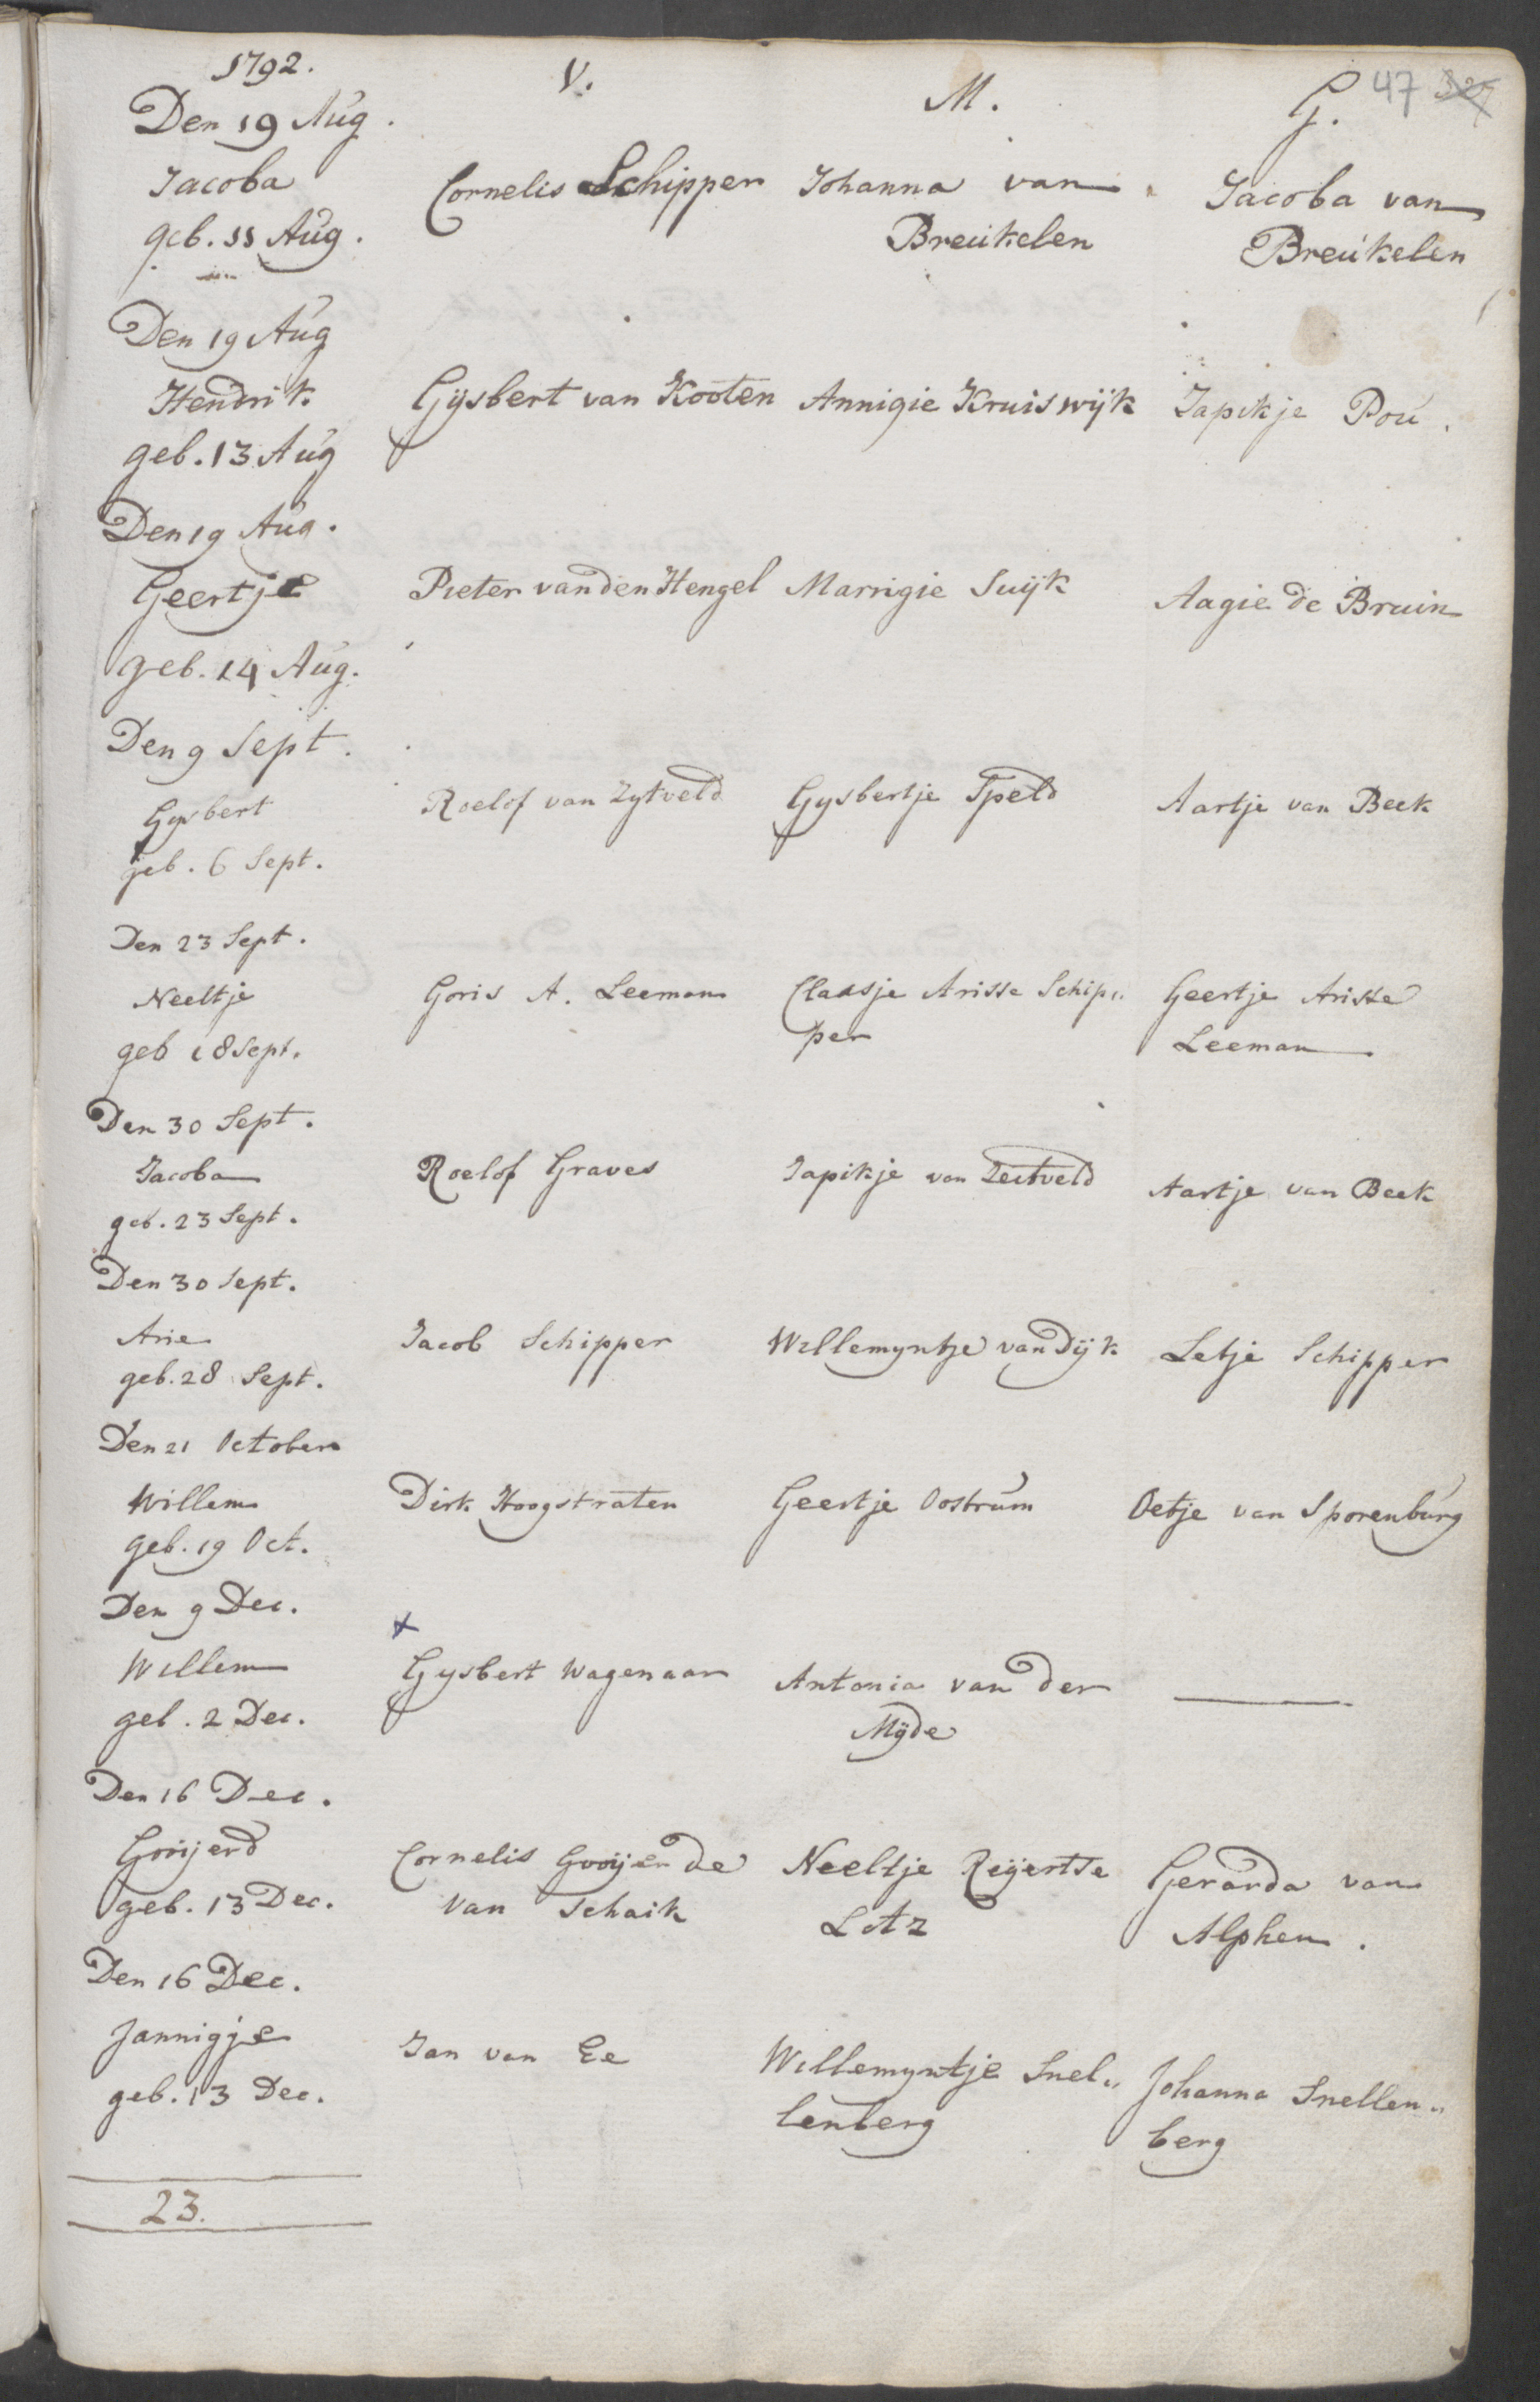 1792. V. M. G. 47
Den 19 Aug.
Jacoba Cornelis Schipper Johanna van Jacoba van
geb. 11 Aug. Breukelen Breukelen
Den 19 Aug
Hendrik Gijsbert van Kooten Annigie Kruiswijk Japikje Pou.
geb. 13 Aug
Den 19 Aug.
Geertje Pieter van den Hengel Marrigie Suijk Aagie de Bruin
geb. 14 Aug.
Den 9 Sept.
Gysbert Roelof van Zytveld Gysbertje Speld Aartje van Beek
geb. 6 Sept.
Den 23 Sept.
Neeltje Goris A. Leeman Claasje Arisse Schip„ Geertje Arisse
geb 18 Sept. per Leeman
Den 30 Sept.
Jacoba Roelof Graves Japikje van Zeitveld Aartje van Beek
geb. 23 Sept.
Den 30 Sept.
Arie Jacob Schipper Willemyntje van Dijk Letje Schipper
geb. 28 Sept.
Den 21 October
Willem Dirk Hoogstraten Geertje Oostrum Oetje van Sporenburg
geb. 19 Oct.
Den 9 Dec.
Willem Gysbert Wagenaar Antonia van der
geb. 2 Dec. Mijde
Den 16 Dec.
Gooijerd Cornelis van Neeltje Reijertse Gerarda van
geb. 13 Dec. Schaik Alphen.
Den 16 Dec.
Jannigje Jan van Ee Willemyntje Snel„ Johanna Snellen„
geb. 13 Dec. lenberg berg
23.